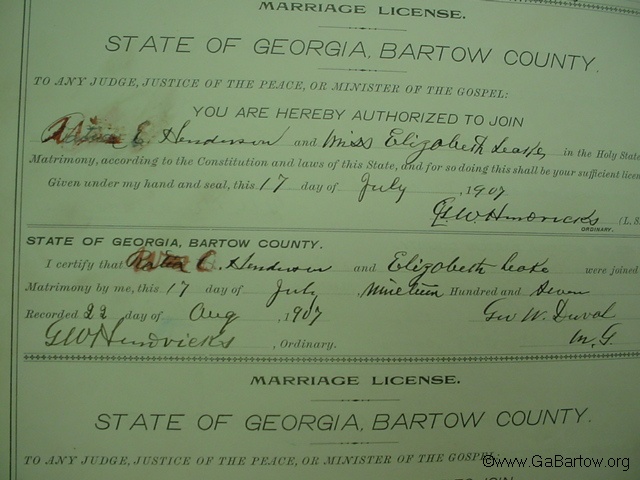 MARRIAGE LICENSE.
STATE OF GEORGIA, BARTOW COUNTY.
TO ANY JUDGE, JUSTICE OF THE PEACE, OR MINISTER OF THE GOSPEL:
YOU ARE HEREBY AUTHORIZED TO JOIN
Henderson and Miss Elizabeth Leake, in the Holy State
Matrimony, according to the Constitution and laws of this State, and for so doing this shall be your sufficient licen
Given under my hand and seal, this 17 day of July, 1907
G.W. Hendricks (L. S.
ORDINARY.
STATE OF GEORGIA, BARTOW COUNTY.
I certify that C. Henderson and Elizabeth Leake were joined
Matrimony by me, this 17 day of July Nineteen Hundred and Seven
Recorded 22 day of Aug, 1907 Geo W. Duval
GW Hendricks, Ordinary. M. G.
MARRIAGE LICENSE.
STATE OF GEORGIA, BARTOW COUNTY.
TO ANY JUDGE, JUSTICE OF THE PEACE, OR MINISTER OF THE GOSPEL:
©www.GaBartow.org